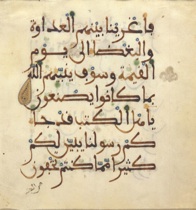 فأغرينا بينهم العداوة
والبغضاء إلى يوم
القيمة وسوف ينبئهم الله
بما كانوا يصنعون
يأهل الكتب قد جا
ءكم رسولنا يبين لكم
كثيرا مما كنتم تخفون